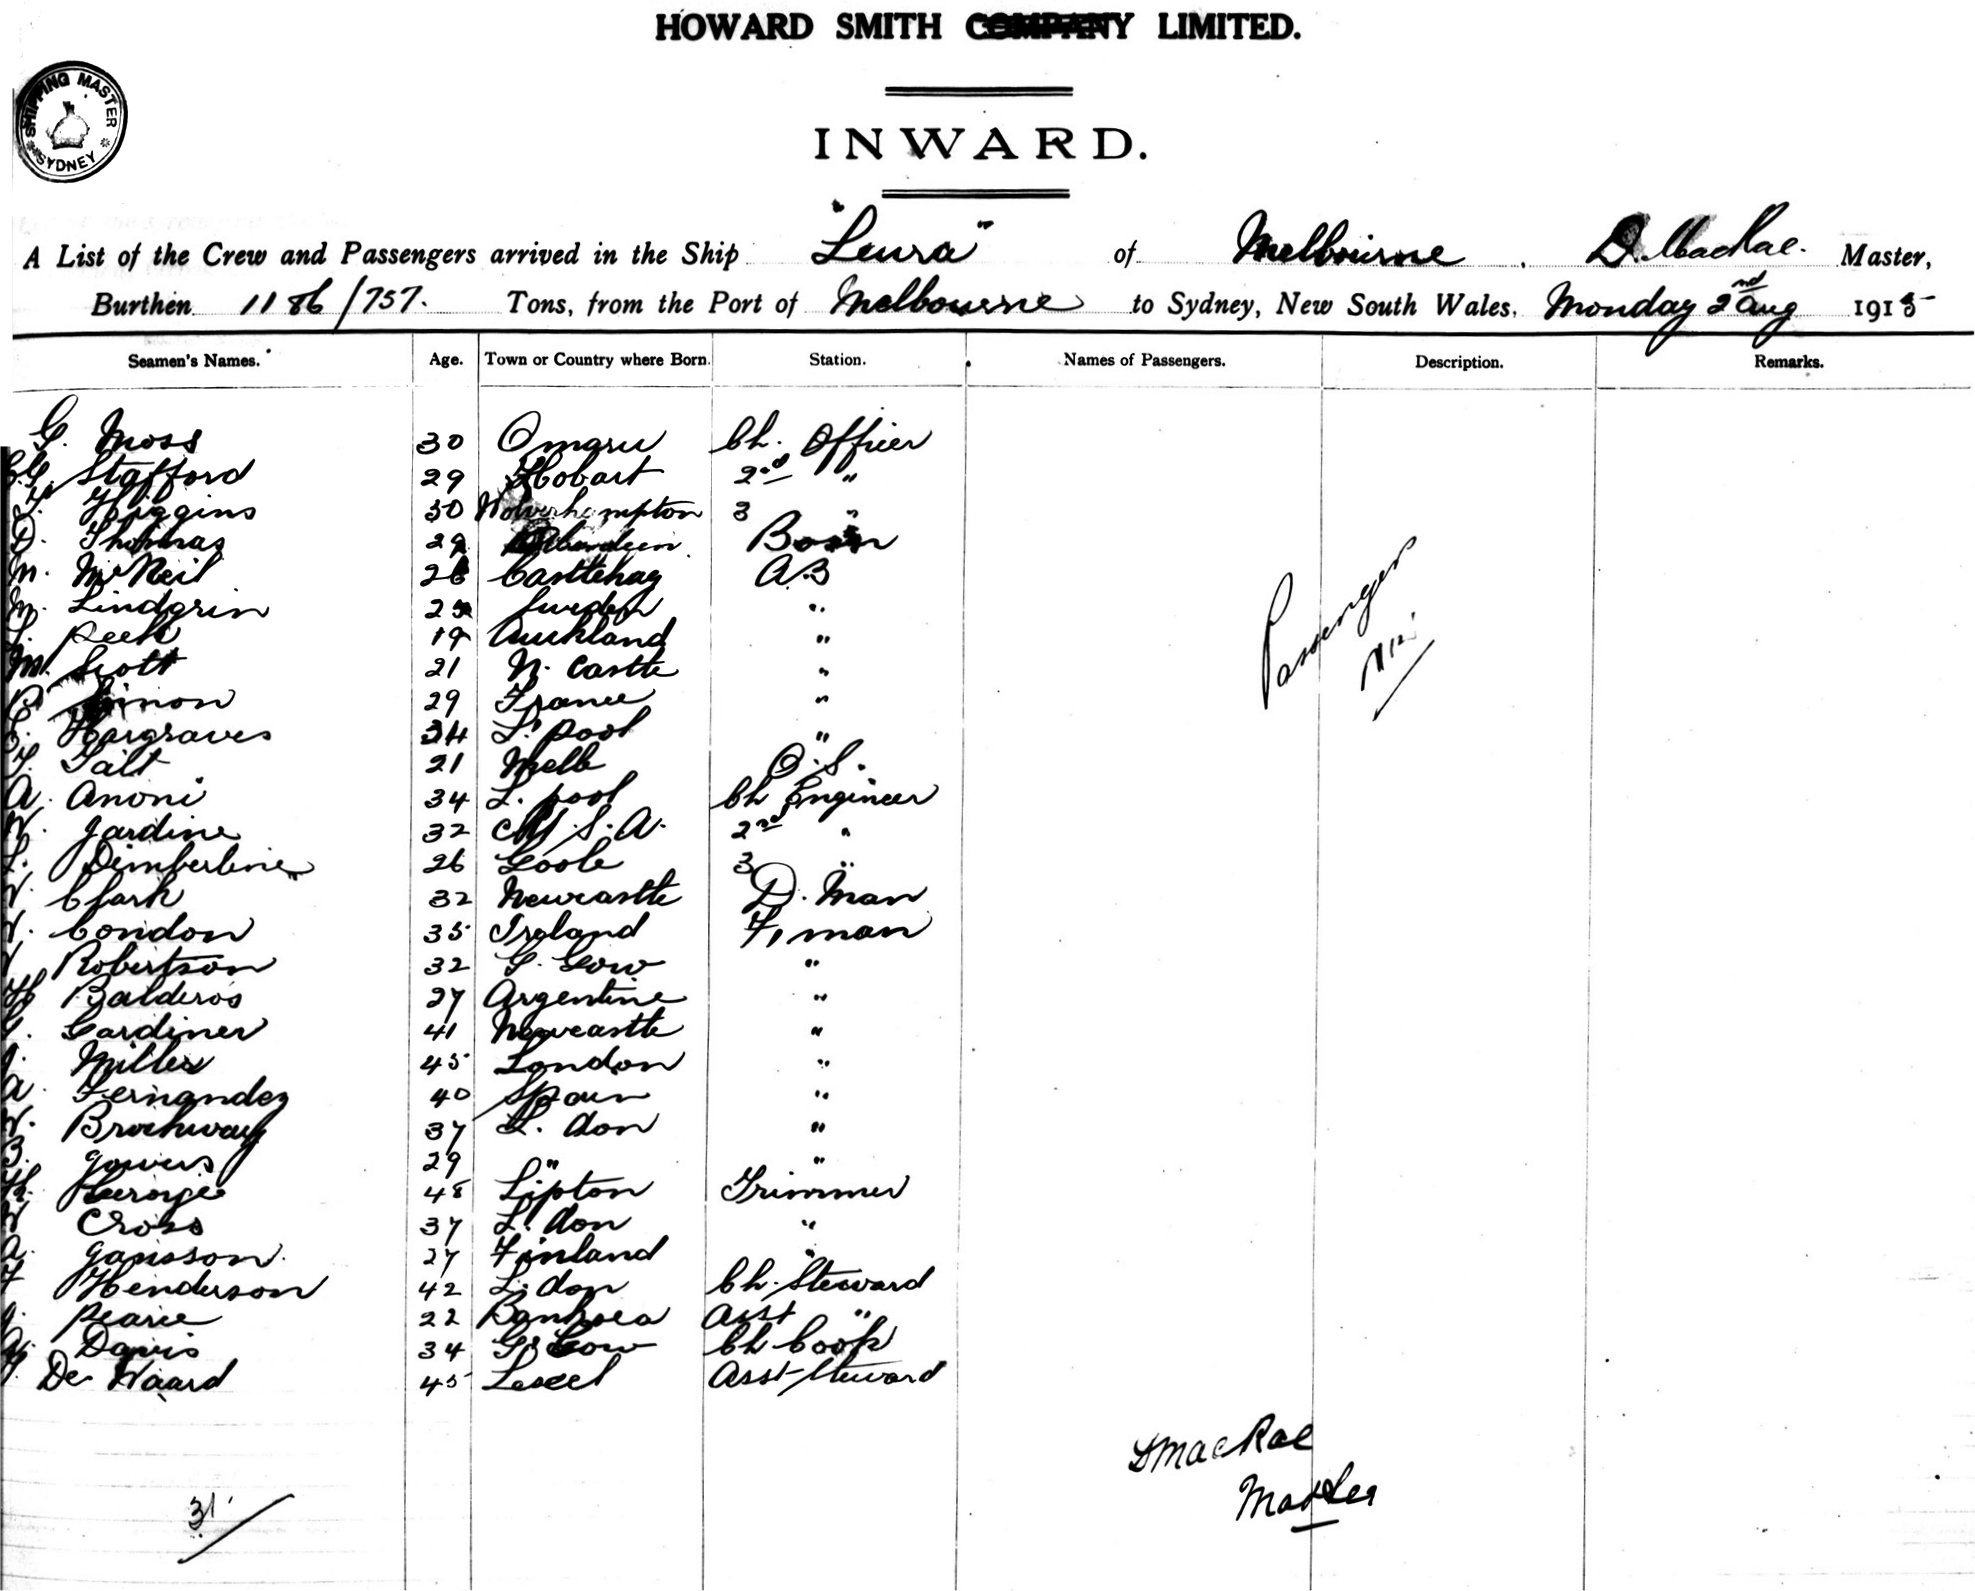 HOWARD SMITH COMPANY LIMITED.
SHIPPING MASTER
SYDNEY
INWARD.
A List of the Crew and Passengers arrived in the Ship "Leura" of Melbourne, D. MacRae. Master,
Burthen 1186/757. Tons, from the Port of Melbourne to Sydney, New South Wales, Monday 2nd Aug 1915
Seamen's Names. Age. Town or Country where Born. Station. Names of Passengers. Description. Remarks.
G. Moss 30 Omaru Ch. Officer
Stafford 29 Hobart 2nd "
Higgins 30 Wolverhampton 3 "
D. Thomas 29 Aberdeen Bosn
M. McNeil 26 Castlehag AB
M. Lindgrin Sweden "
Peek 19 Auckland "
M. Scott 21 N. Castle "
Simon 29 France "
Hargraves 34 L. pool "
Galt 21 Melb O.S.
A. Anoni 34 L. pool Ch Engineer
Jardine 32 S.A. 2nd "
Dimberline 26 Goole 3 "
Clark 32 Newcastle D. Man
Condon 35 Ireland F, man
Robertson 32 G. Gow "
Balderos 27 Argentine "
Gardiner 41 Newcastle "
Miller 45 London "
A. Fernandez 40 Spain "
Brockway 37 L. don "
B. Gowers 29 " "
George 48 Lipton Trimmer
Cross 37 L. don "
A. Jansson 27 Finland "
Henderson 42 L. don Ch. Steward
Pearce 22 Banksea Asst "
Davis 34 G. Gow Ch Cook
De Waard 45 Asst Steward
Passenger
Nil
DMacRae
Master
31